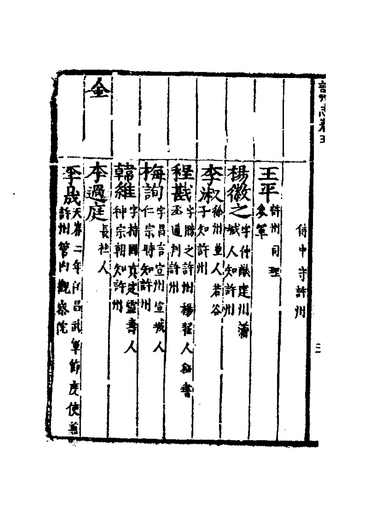 許州志卷五
傅中守許州
王平許州司理
參軍
楊徽之字仲猷建州蒲
城人知許州
李淑徐州豐人若谷
子知許州
程戡字勝之許州陽翟人秘書
丞通判許州
梅詢字昌言宣州宣城人
仁宗時知許州
韓維字持國真定靈壽人
神宗朝知許州
李過庭長社人
金
李成天眷二年任昌武軍節度使兼
許州管內觀察院
三